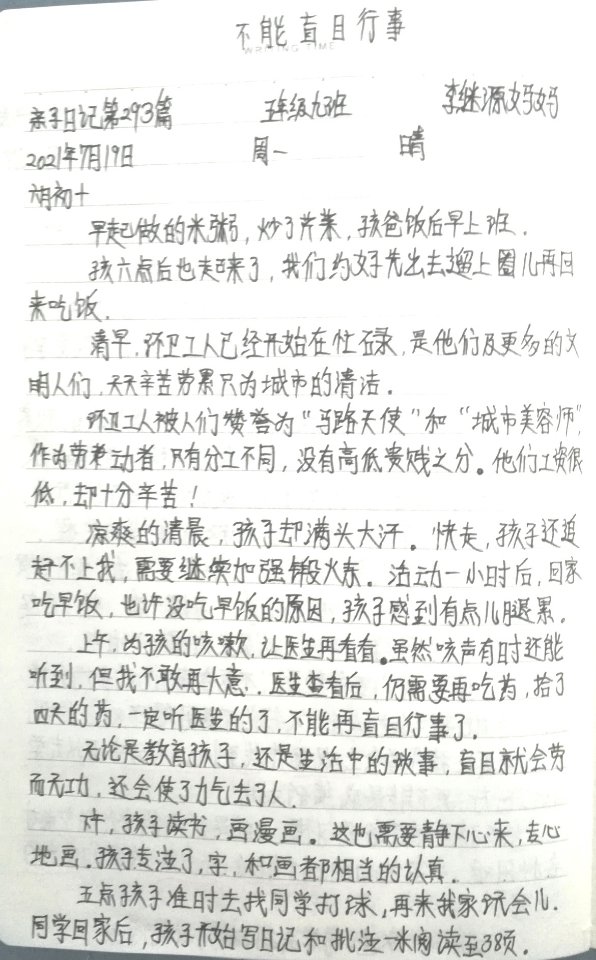 不能盲目行事
WRITING TIME
亲子日记第293篇 五年级九班 李继源妈妈
2021年7月19日 周一 晴
六月初十
早起做的米粥，炒了芹菜，孩爸饭后早上班．
孩六点后也起来了，我们约好先出去遛上圈儿再回
来吃饭．
清早，环卫工人已经开始在忙碌，是他们及更多的文
明人们，天天辛苦劳累只为城市的清洁．
环卫工人被人们赞誉为“马路天使”和“城市美容师”，
作为劳动者，只有分工不同，没有高低贵贱之分。他们工资很
低，却十分辛苦！
凉爽的清晨，孩子却满头大汗。快走，孩子还追
赶不上我，需要继续加强锻炼。活动一小时后，回家
吃早饭，也许没吃早饭的原因，孩子感到有点儿腿累．
上午，为孩的咳嗽，让医生再看看。虽然咳声有时还能
听到，但我不敢再大意．医生查看后，仍需要再吃药，拾了
四天的药，一定听医生的了，不能再盲目行事了．
无论是教育孩子，还是生活中的琐事，盲目就会劳
而无功，还会使了力气去了人．
下午，孩子读书，画漫画。这也需要静下心来，走心
地画．孩子专注了，字，和画都相当的认真．
五点孩子准时去找同学打球，再来我家玩会儿．
同学回家后，孩子开始写日记和批注一米阅读至38页．